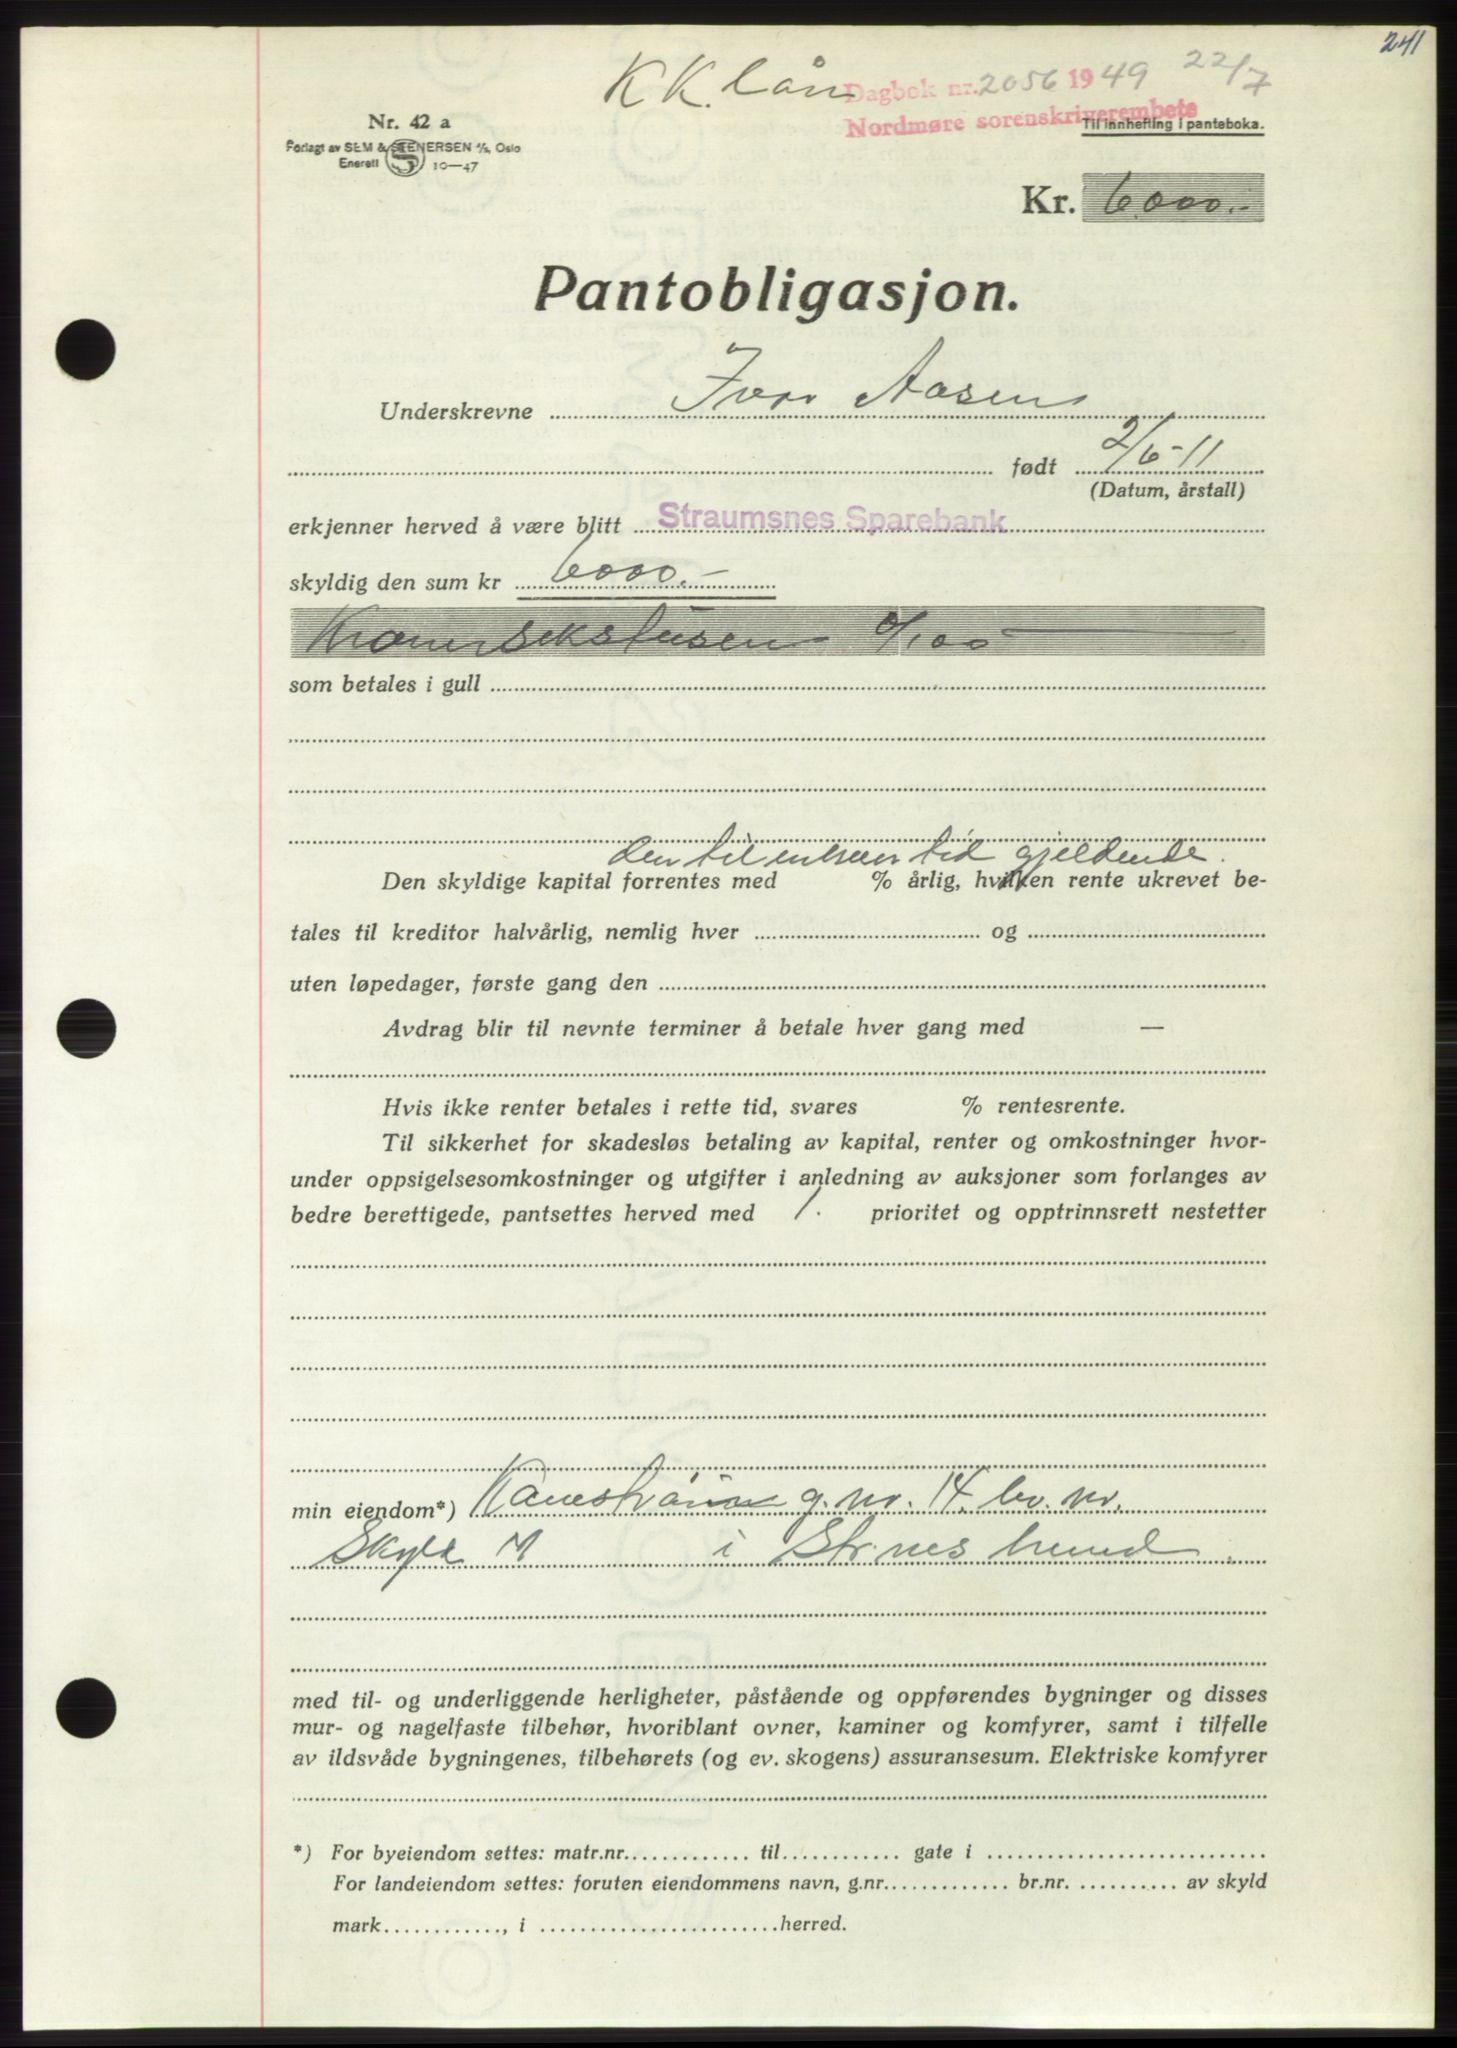 241
K K. lån
Dagbok nr. 2056 1949 22/7
Nordmøre sorenskriverembete
Til innhefting i panteboka.
Nr. 42 a
Forlagt av SEM & STENERSEN A/S, Oslo
Enerett S 10—47
Kr. 6000.-
Pantobligasjon.
Underskrevne Ivar Aasen
født 2/6-11
(Datum, årstall)
erkjenner herved å være blitt Straumsnes Sparebank
skyldig den sum kr 6000.-
Kroner Sekstusen 0/100
som betales i gull
den til enhver tid gjeldende.
Den skyldige kapital forrentes med % årlig, hvilken rente ukrevet be-
tales til kreditor halvårlig, nemlig hver og
uten løpedager, første gang den
Avdrag blir til nevnte terminer å betale hver gang med —
Hvis ikke renter betales i rette tid, svares % rentesrente.
Til sikkerhet for skadesløs betaling av kapital, renter og omkostninger hvor-
under oppsigelsesomkostninger og utgifter i anledning av auksjoner som forlanges av
bedre berettigede, pantsettes herved med 1. prioritet og opptrinnsrett nestetter
min eiendom*) g. nr. 14. br. nr.
Skyld M i Str.nes herred.
med til- og underliggende herligheter, påstående og oppførendes bygninger og disses
mur- og nagelfaste tilbehør, hvoriblant ovner, kaminer og komfyrer, samt i tilfelle
av ildsvåde bygningenes, tilbehørets (og ev. skogens) assuransesum. Elektriske komfyrer
*) For byeiendom settes: matr.nr. til gate i
For landeiendom settes: foruten eiendommens navn, g.nr. br.nr. av skyld
mark , i herred.